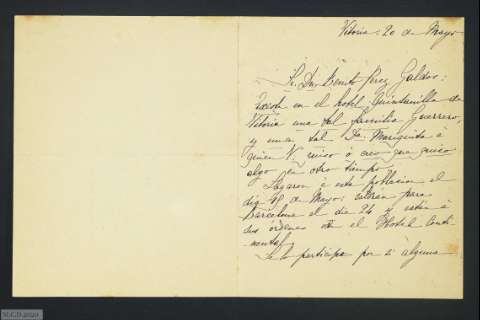 Vitoria: 20 de Mayo
Sr. Dn. Benito Perez Galdos:
en el hotel Quintanilla de
Vitoria una tal familia Guerrero,
y una tal Da. Mariquita á
quien V. quiso ó creo que quiso
algo en otro tiempo.
Llegaron á esta poblacion el
dia 19 de Mayo; saldrán para
Barcelona el dia 24 y están á
sus órdenes en el Hotel Conti
nental
Se lo participo por si alguna